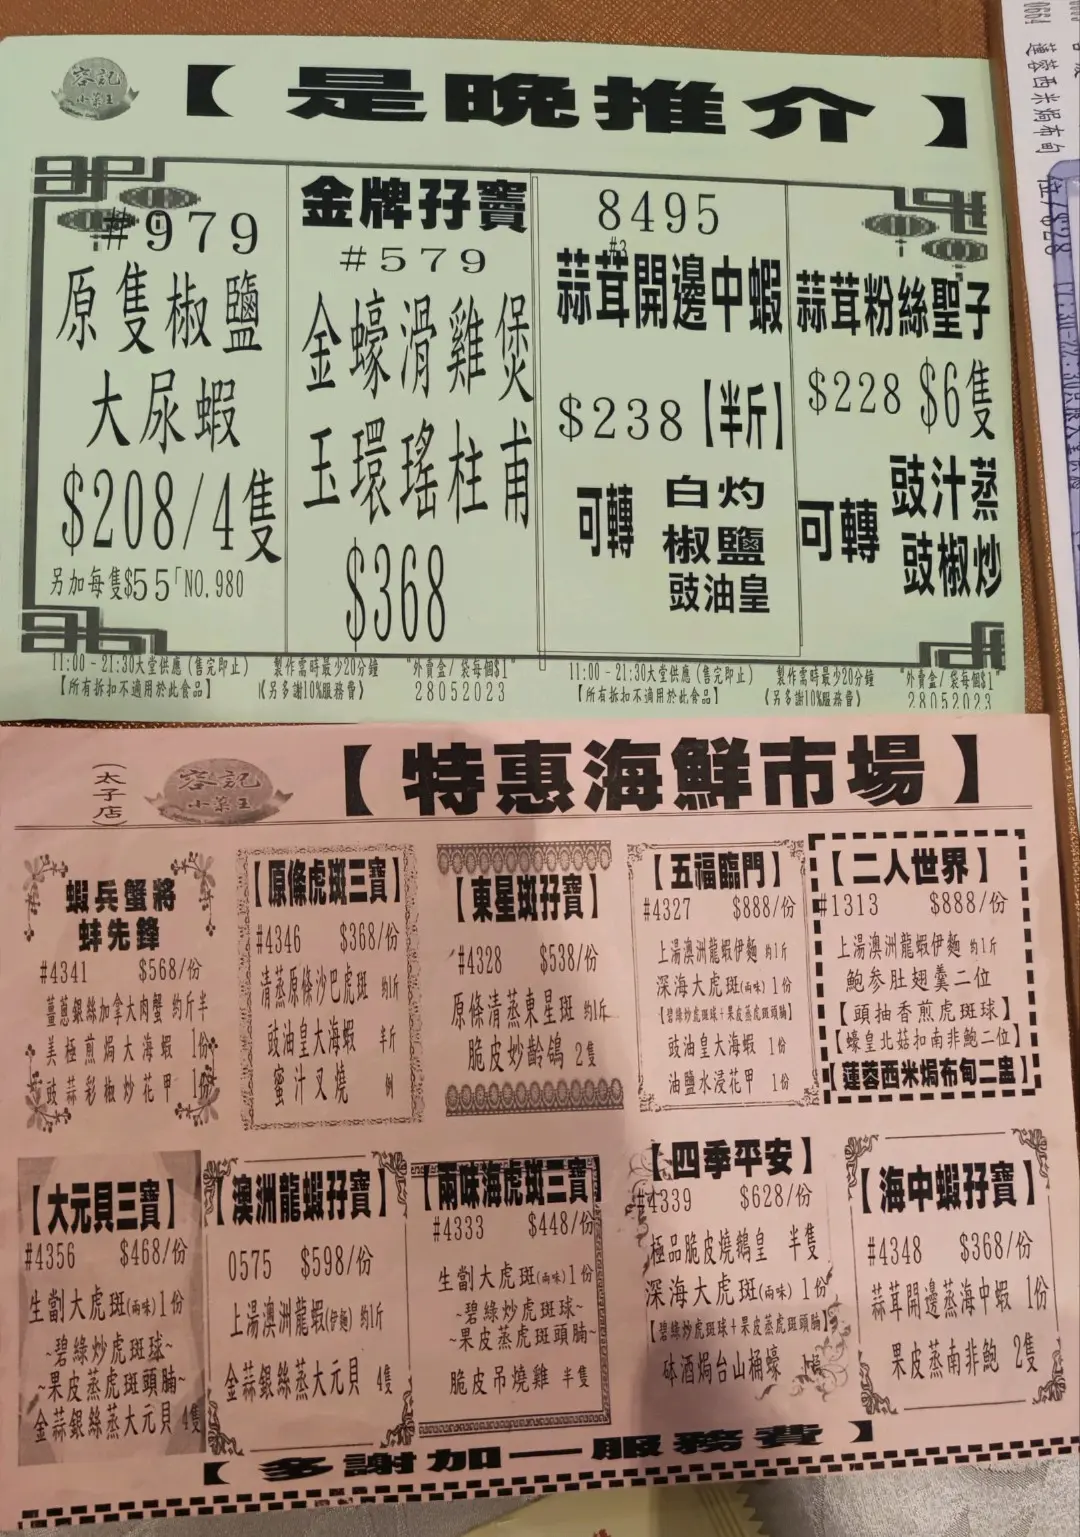 容記
小菜王
【是晚推介】
#979
原隻椒鹽
大尿蝦
$208/4隻
另加每隻$55「NO.980
金牌孖寶
#579
金蠔滑雞煲
玉環瑤柱甫
$368
8495
#3
蒜茸開邊中蝦
$238【半斤】
可轉
白灼
椒鹽
豉油皇
蒜茸粉絲聖子
$228 $6隻
可轉
豉汁蒸
豉椒炒
11:00-21:30大堂供應(售完即止) 製作需時最少20分鐘 "外賣盒/袋每個$1"
【所有拆扣不適用於此食品】 《另多謝10%服務費》 28052023
11:00-21:30大堂供應(售完即止) 製作需時最少20分鐘 "外賣盒/袋每個$1"
【所有拆扣不適用於此食品】 《另多謝10%服務費》 28052023
(太子店)
容記
小菜王
【特惠海鮮市場】
蝦兵蟹將
蚌先鋒
#4341 $568/份
薑蔥銀絲加拿大肉蟹 約斤半
美極煎焗大海蝦 1份
豉蒜彩椒炒花甲 1份
【原條虎斑三寶】
#4346 $368/份
清蒸原條沙巴虎斑 約1斤
豉油皇大海蝦 半斤
蜜汁叉燒 例
【東星斑孖寶】
#4328 $538/份
原條清蒸東星斑 約1斤
脆皮妙齡鴿 2隻
【五福臨門】
#4327 $888/份
上湯澳洲龍蝦伊麵 約1斤
深海大虎斑(兩味) 1份
【碧綠炒虎斑球+果皮蒸虎斑頭腩】
豉油皇大海蝦 1份
油鹽水浸花甲 1份
【二人世界】
#1313 $888/份
上湯澳洲龍蝦伊麵 約1斤
鮑參肚翅羹二位
【頭抽香煎虎斑球】
【蠔皇北菇扣南非鮑二位】
【蓮蓉西米焗布甸二盅】
【大元貝三寶】
#4356 $468/份
生劏大虎斑(兩味)1份
~碧綠炒虎斑球~
~果皮蒸虎斑頭腩~
金蒜銀絲蒸大元貝 4隻
【澳洲龍蝦孖寶】
0575 $598/份
上湯澳洲龍蝦(伊麵) 約1斤
金蒜銀絲蒸大元貝 4隻
【兩味海虎斑三寶】
#4333 $448/份
生劏大虎斑(兩味)1份
~碧綠炒虎斑球~
~果皮蒸虎斑頭腩~
脆皮吊燒雞 半隻
【四季平安】
#4339 $628/份
極品脆皮燒鵝皇 半隻
深海大虎斑(兩味) 1份
【碧綠炒虎斑球+果皮蒸虎斑頭腩】
砵酒焗台山桶蠔
【海中蝦孖寶】
#4348 $368/份
蒜茸開邊蒸海中蝦 1份
果皮蒸南非鮑 2隻
【多謝加一服務費】
0664 蓮蓉西米焗布甸 位/$28